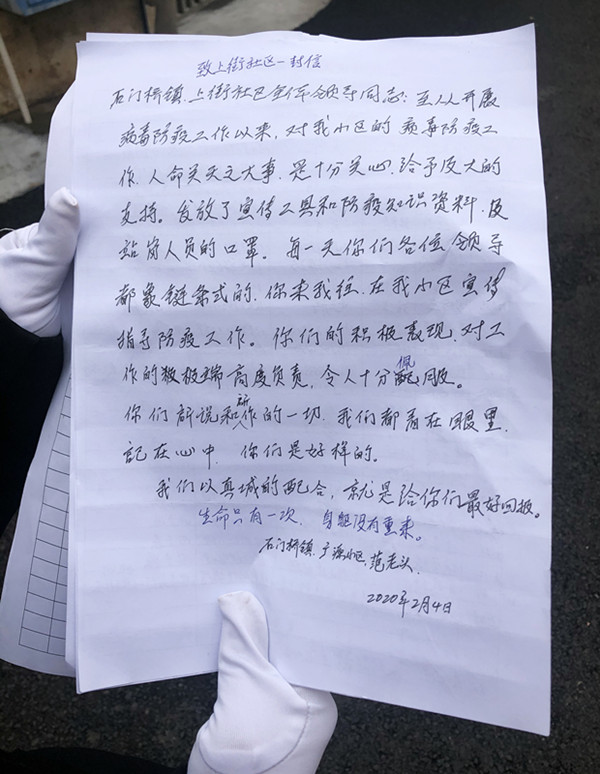 致上街社区一封信
石门桥镇、上街社区全体领导同志：互从开展
病毒防疫工作以来，对我小区的病毒防疫工
作、人命关天之大事、是十分关心，给予皮大的
支持。发放了宣传工具和防疫知识资料、及
站岗人员的口罩。每一天你们各位领导
都象链条式的、你来我往、在我小区宣传
指导防疫工作。你们的积极表现、对工
作的极端高度负责，令人十分佩服。
你们所说和所作的一切，我们都看在眼里，
记在心中，你们是好样的。
我们以真城的配合，就是给你们最好回报。
生命只有一次，身躯没有重来。
石门桥镇、广源小区，范老头、
2020年2月4日